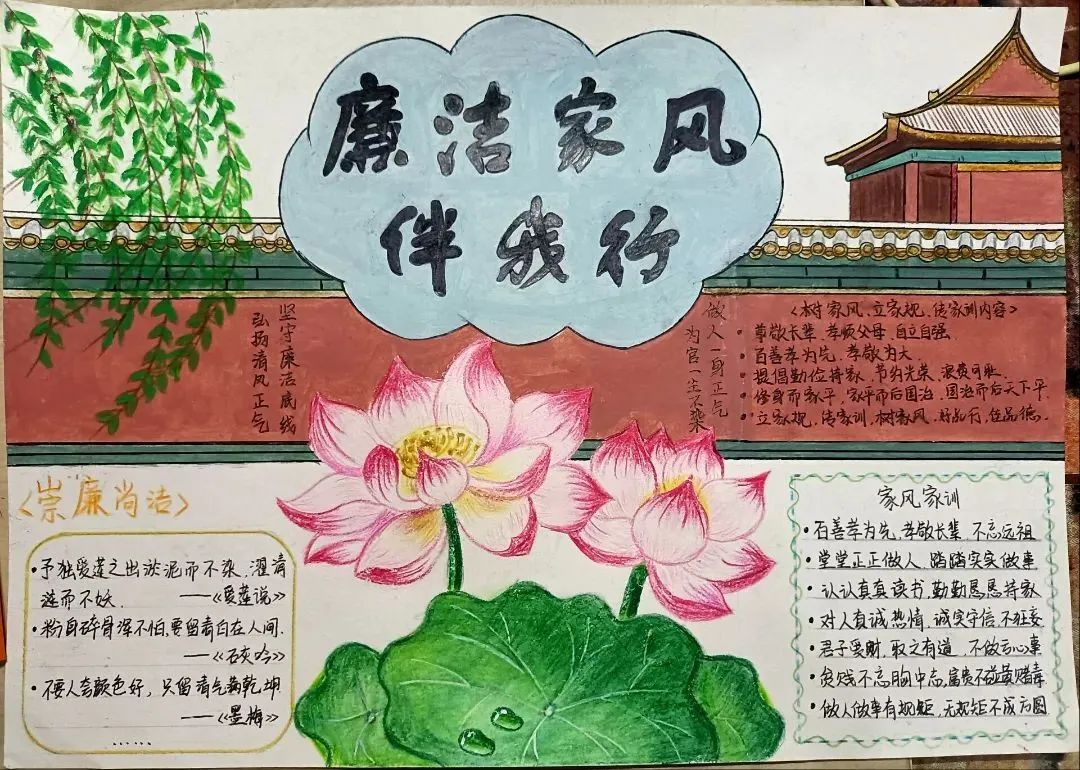 廉洁家风
伴我行
坚守廉洁底线
弘扬清风正气
做人一身正气
为官一尘不染
<树家风、立家规、传家训内容>
• 尊敬长辈、孝顺父母、自立自强.
• 百善孝为先，孝敬为大.
• 提倡勤俭持家，节约光荣、浪费可耻.
• 修身而家平，家平而后国治，国治而后天下平.
• 立家规，传家训，树家风，好品行，任品德.
<崇廉尚洁>
• 予独爱莲之出淤泥而不染，濯清
涟而不妖. ——《爱莲说》
• 粉身碎骨浑不怕，要留青白在人间.
——《石灰吟》
• 不要人夸颜色好，只留清气满乾坤
——《墨梅》
……
家风家训
• 百善孝为先，孝敬长辈，不忘远祖
• 堂堂正正做人，踏踏实实做事
• 认认真真读书，勤勤恳恳持家
• 对人真诚热情，诚实守信，不狂妄
• 君子爱财，取之有道，不做亏心事
• 贫贱不忘胸中志，富贵不沾黄赌毒
• 做人做事有规矩，无规矩不成方圆